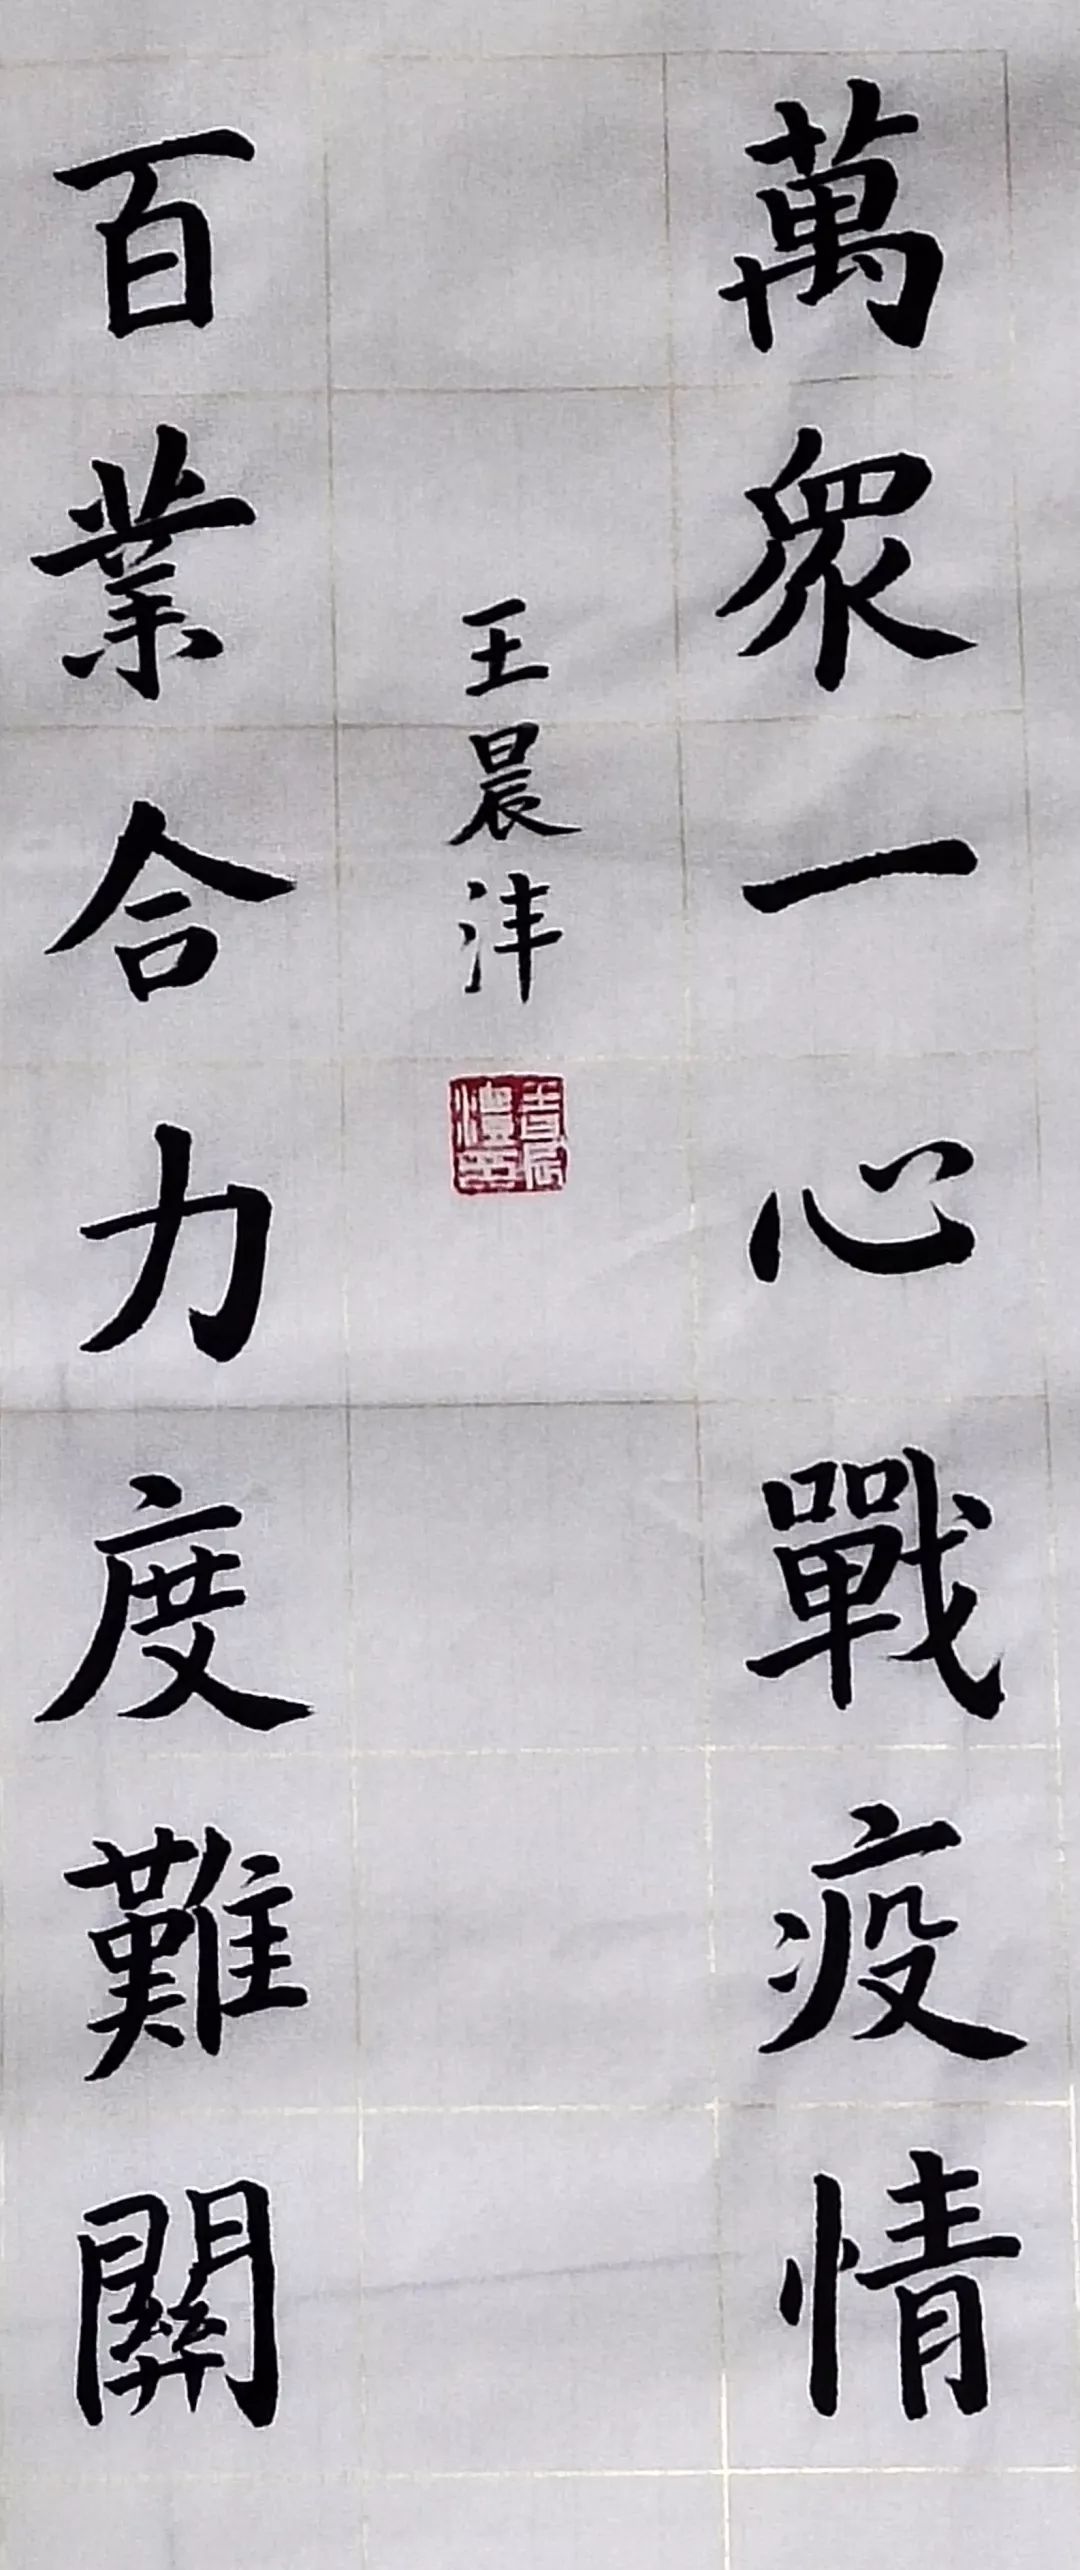 萬衆一心戰疫情
百業合力度難關
王晨沣